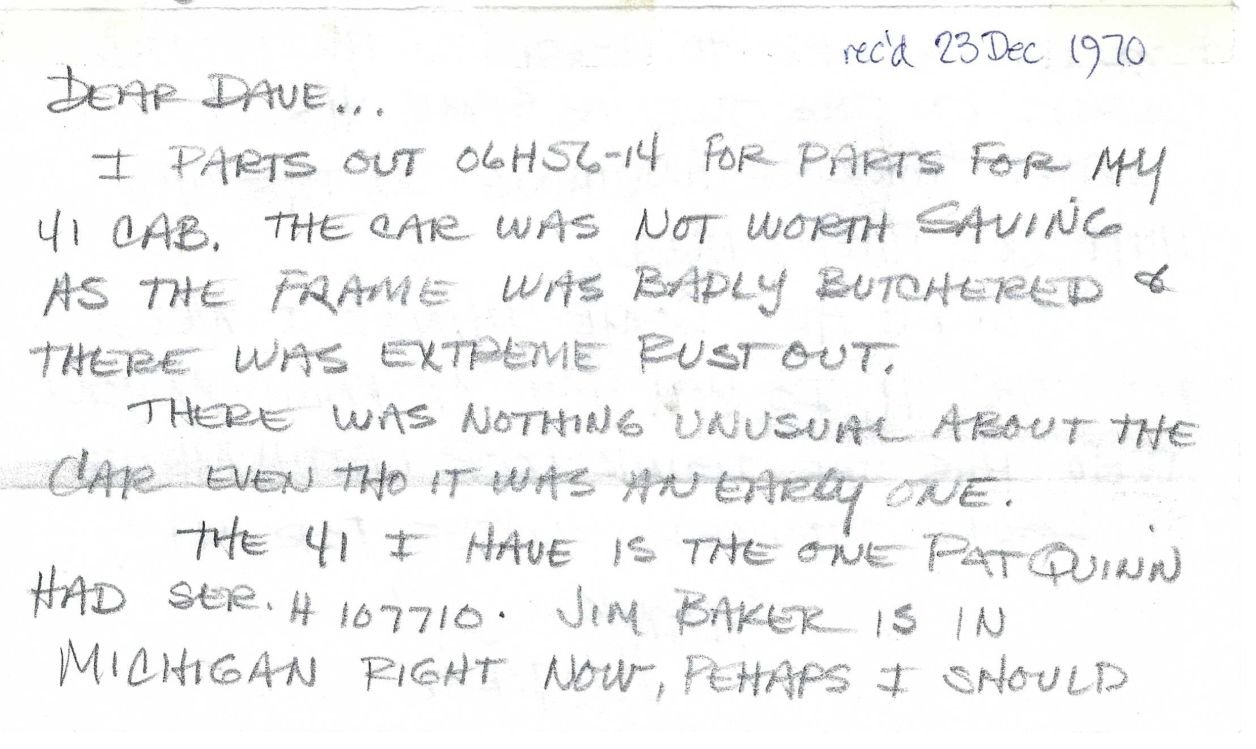 rec'd 23 Dec 1970
DEAR DAVE...
I PARTS OUT 06H56-14 FOR PARTS FOR MY
41 CAB. THE CAR WAS NOT WORTH SAVING
AS THE FRAME WAS BADLY BUTCHERED &
THERE WAS EXTREME RUST OUT.
THERE WAS NOTHING UNUSUAL ABOUT THE
CAR EVEN THO IT WAS AN EARLY ONE.
THE 41 I HAVE IS THE ONE PAT QUINN
HAD SER. H 107710. JIM BAKER IS IN
MICHIGAN RIGHT NOW, PEHAPS I SHOULD